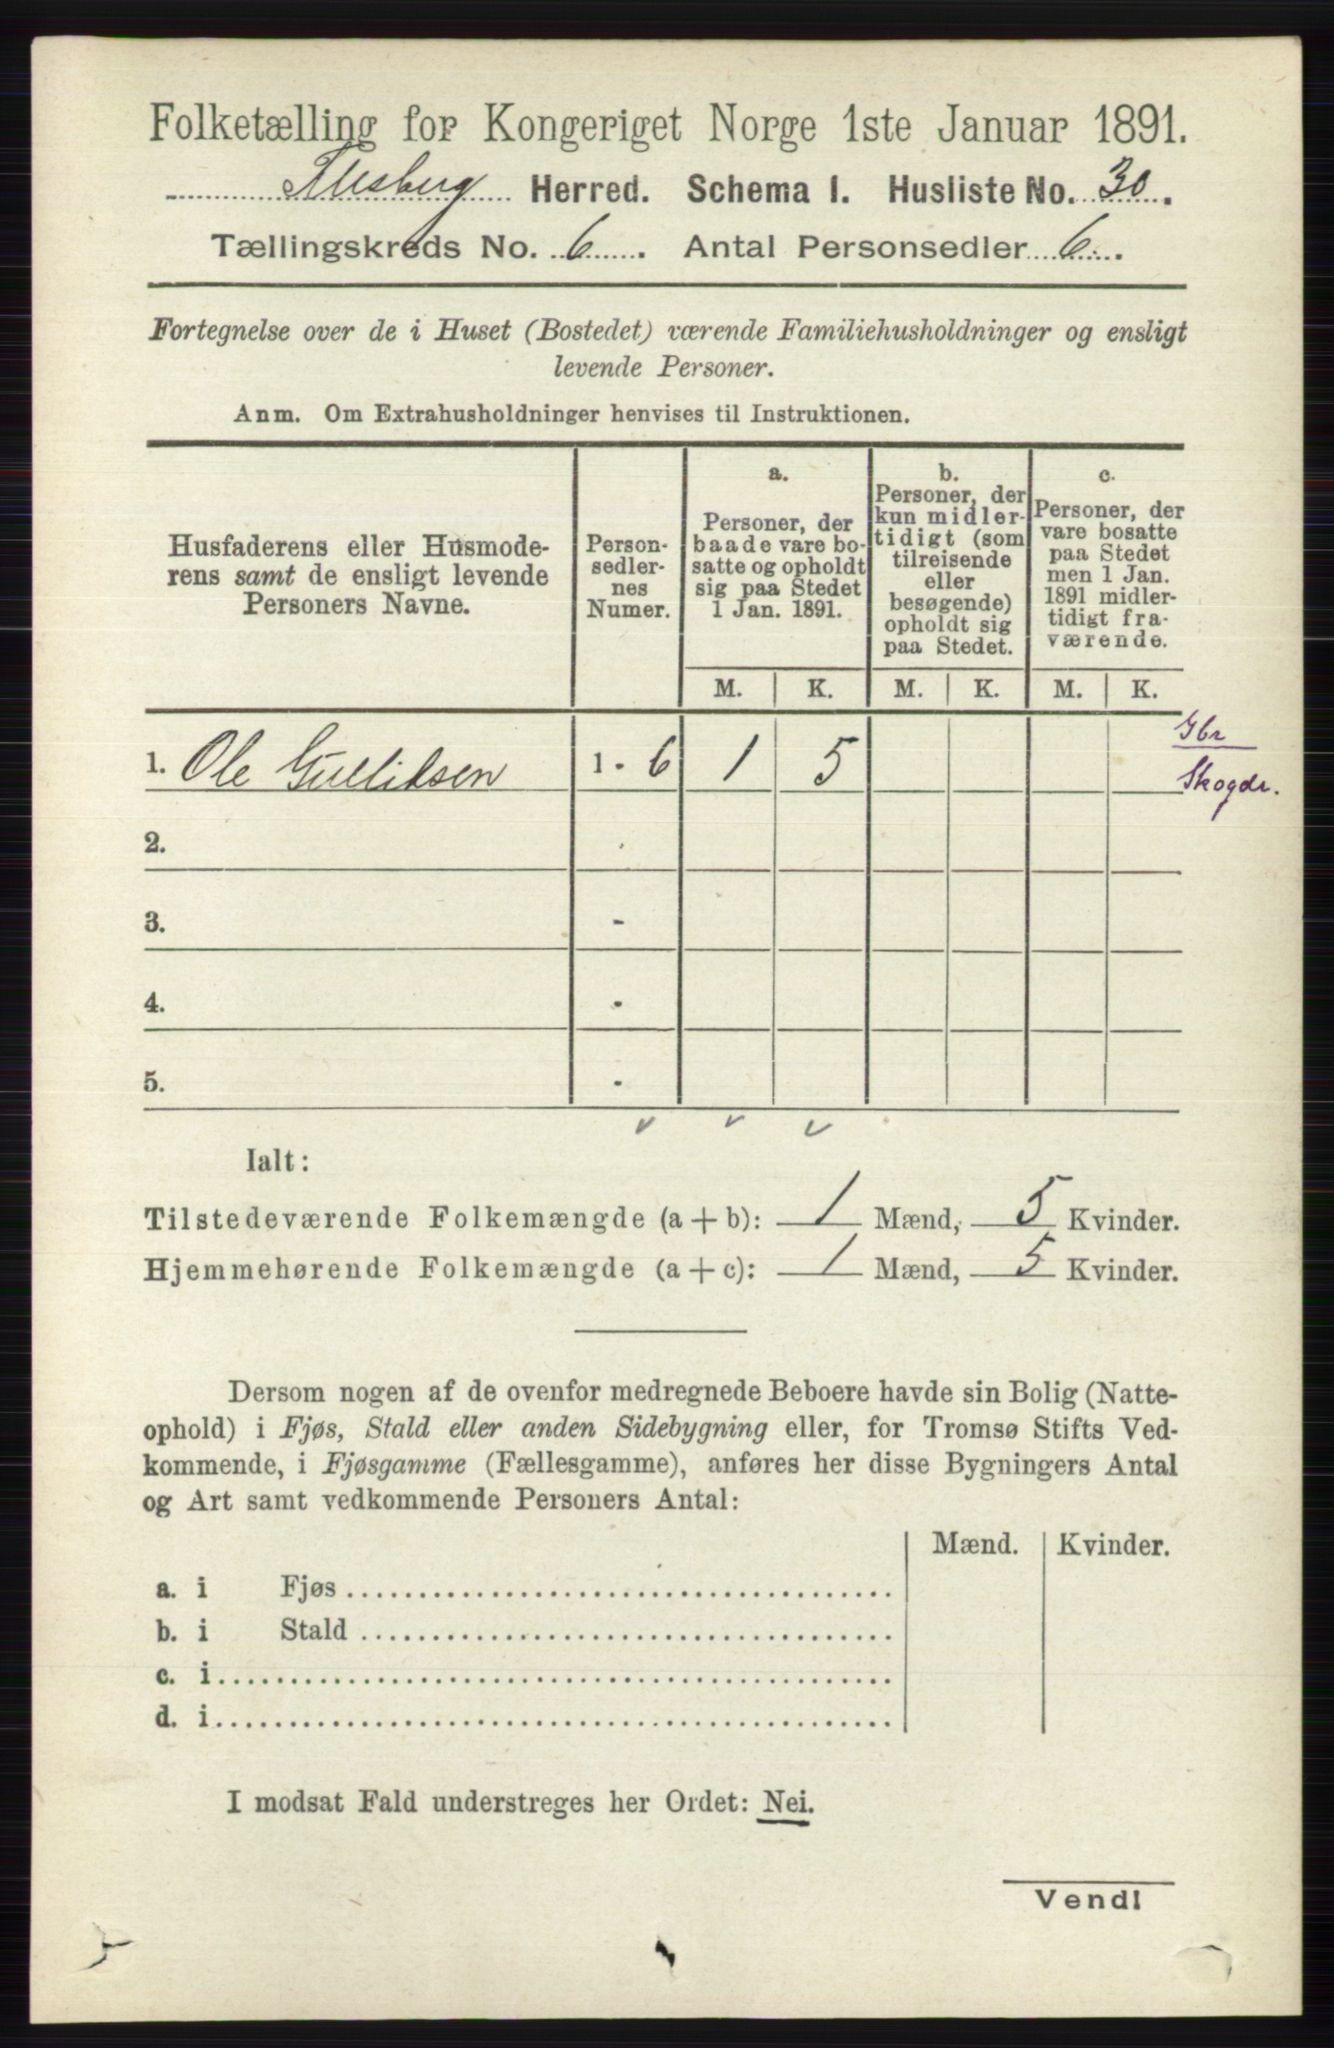 Folketælling for Kongeriget Norge 1ste Januar 1891.
Flesberg Herred. Schema I. Husliste No. 30.
Tællingskreds No. 6. Antal Personsedler 6.
Fortegnelse over de i Huset (Bostedet) værende Familiehusholdninger og ensligt
levende Personer.
Anm. Om Extrahusholdninger henvises til Instruktionen.
Husfaderens eller Husmode-
rens samt de ensligt levende
Personers Navne.
Person-
sedler-
nes
Numer.
a.
Personer, der
baade vare bo-
satte og opholdt
sig paa Stedet
1 Jan. 1891.
b.
Personer, der
kun midler-
tidigt (som
tilreisende
eller
besøgende)
opholdt sig
paa Stedet.
c.
Personer, der
vare bosatte
paa Stedet
men 1 Jan.
1891 midler-
tidigt fra-
værende.
M. K. M. K. M. K.
1. Ole Gulliksen 1 - 6 1 5
Gbr
Skogdr.
2.
3. -
4. -
5. -
Ialt:
Tilstedeværende Folkemængde (a + b): 1 Mænd, 5 Kvinder.
Hjemmehørende Folkemængde (a + c): 1 Mænd, 5 Kvinder.
Dersom nogen af de ovenfor medregnede Beboere havde sin Bolig (Natte-
ophold) i Fjøs, Stald eller anden Sidebygning eller, for Tromsø Stifts Ved-
kommende, i Fjøsgamme (Fællesgamme), anføres her disse Bygningers Antal
og Art samt vedkommende Personers Antal:
Mænd. Kvinder.
a. i Fjøs
b. i Stald
c. i
d. i
I modsat Fald understreges her Ordet: Nei.
Vend!